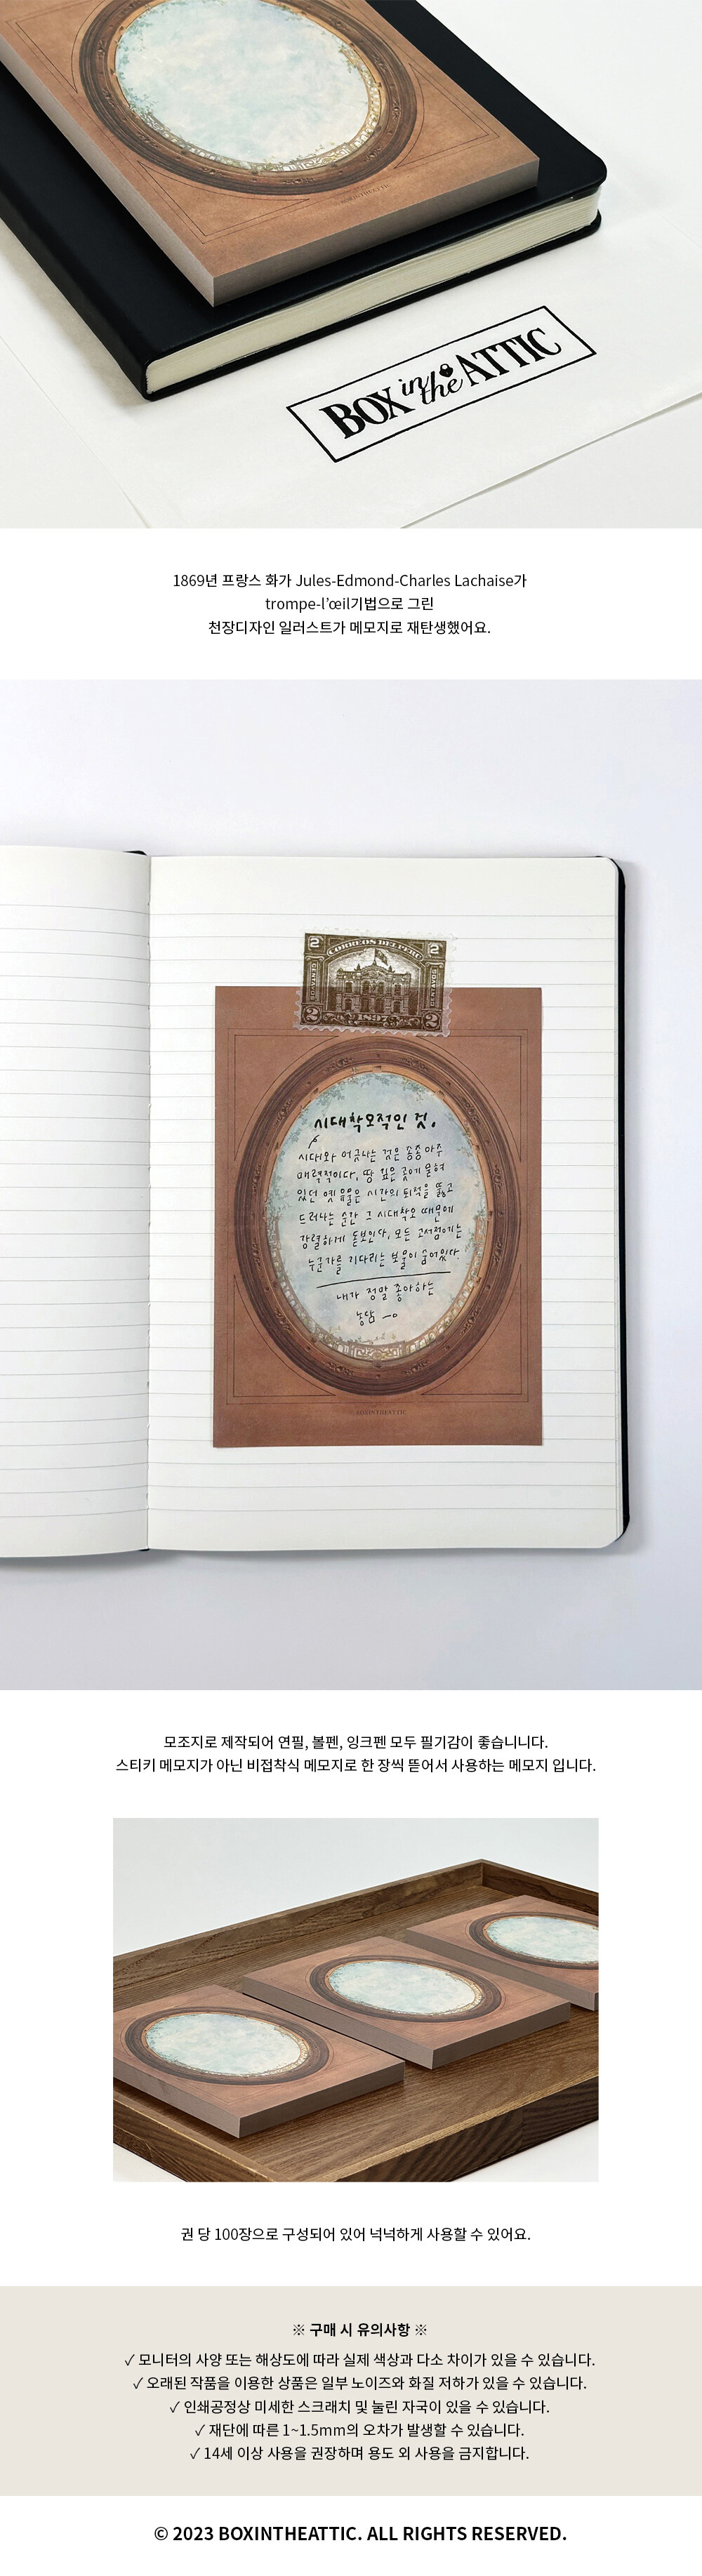 BOXINTHEATTIC
BOX in the ATTIC
1869년 프랑스 화가 Jules-Edmond-Charles Lachaise가
trompe-l’œil기법으로 그린
천장디자인 일러스트가 메모지로 재탄생했어요.
2 CORREOS DEL PERU 2
CENTAVOS CENTAVOS
2 1897 2
시대착오적인 것.
시대와 어긋나는 것은 종종 아주
매력적이다. 땅 깊은 곳에 묻혀
있던 옛 유물은 시간의 퇴적을 뚫고
드러나는 순간 그 시대착오 때문에
강렬하게 돋보인다. 모든 고서점에는
누군가를 기다리는 보물이 숨어있다.
내가 정말 좋아하는
농담
BOXINTHEATTIC
모조지로 제작되어 연필, 볼펜, 잉크펜 모두 필기감이 좋습니니다.
스티키 메모지가 아닌 비접착식 메모지로 한 장씩 뜯어서 사용하는 메모지 입니다.
권 당 100장으로 구성되어 있어 넉넉하게 사용할 수 있어요.
※ 구매 시 유의사항 ※
✓ 모니터의 사양 또는 해상도에 따라 실제 색상과 다소 차이가 있을 수 있습니다.
✓ 오래된 작품을 이용한 상품은 일부 노이즈와 화질 저하가 있을 수 있습니다.
✓ 인쇄공정상 미세한 스크래치 및 눌린 자국이 있을 수 있습니다.
✓ 재단에 따른 1~1.5mm의 오차가 발생할 수 있습니다.
✓ 14세 이상 사용을 권장하며 용도 외 사용을 금지합니다.
© 2023 BOXINTHEATTIC. ALL RIGHTS RESERVED.